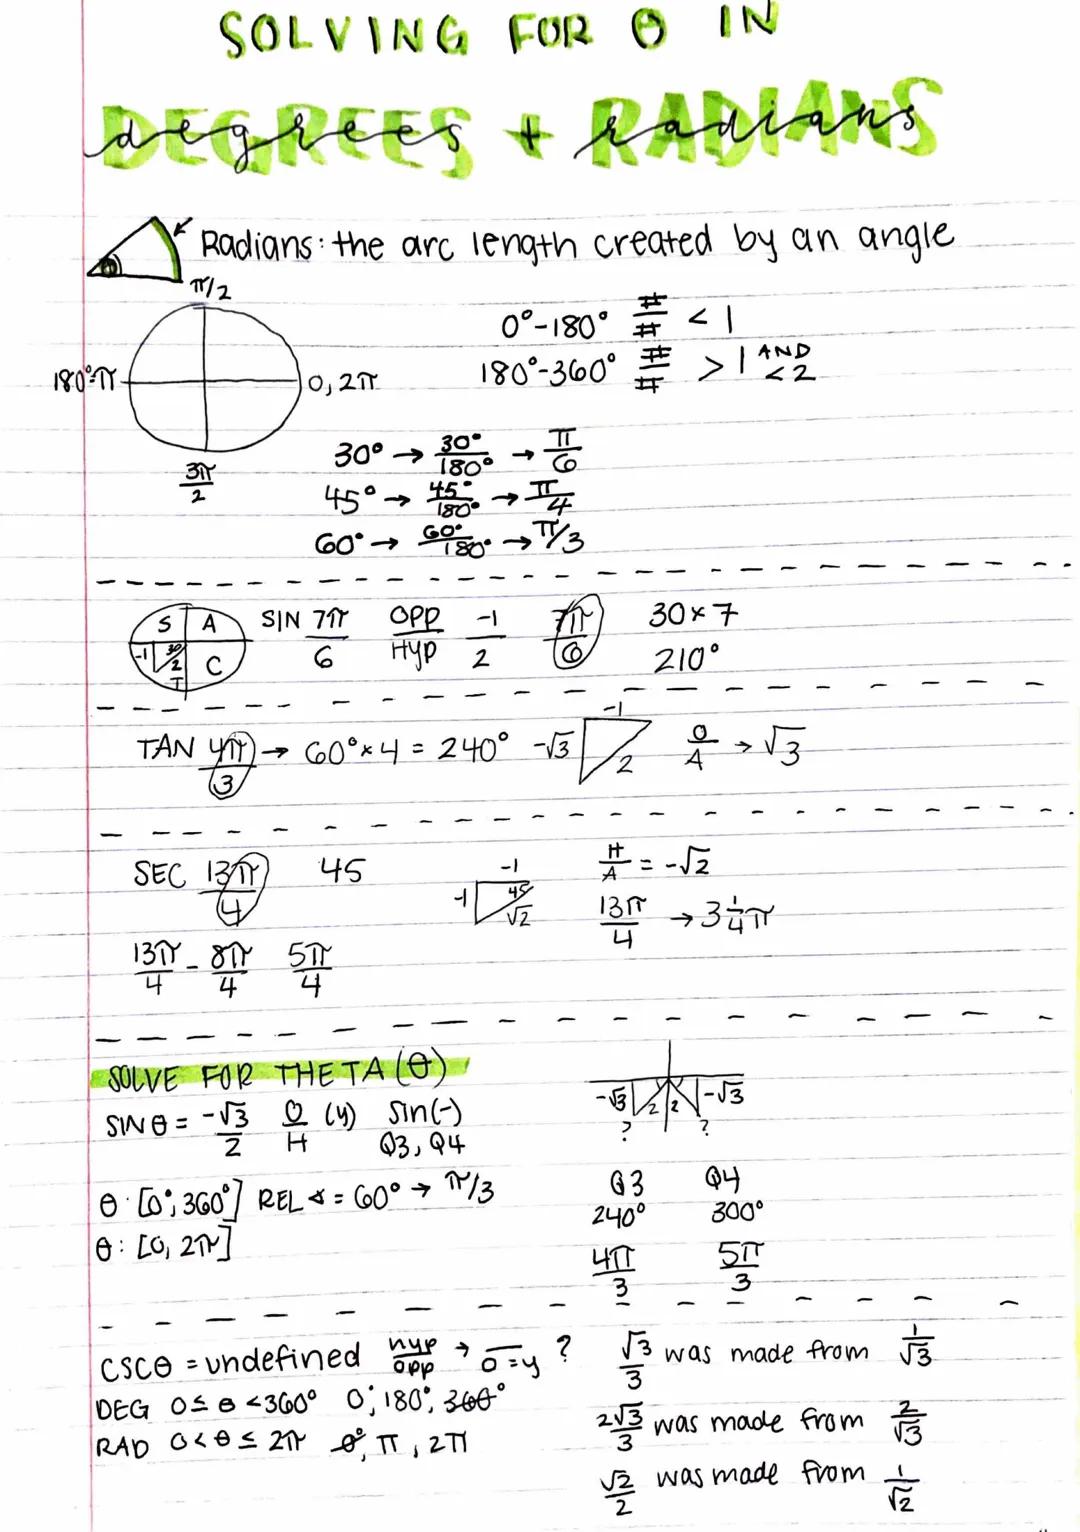 SOLVING FOR θ IN
DEGREES + RADIANS
degrees + radians
Radians: the arc length created by an angle
π/2
180°=π
0, 2π
3π/2
0°-180° #/# < 1
180°-360° #/# > 1 AND < 2
30° → 30°/180° → π/6
45° → 45°/180° → π/4
60° → 60°/180° → π/3
S A
-1 30 2 T C
SIN 7π/6 OPP/HYP -1/2 7π/6 30×7
210°
TAN 4π/3 → 60°×4 = 240° -√3 -1 2 O/A → √3
SEC 13π/4 45 -1 -1 45 √2 H/A = -√2
13π/4 → 3 1/4 π
13π/4 - 8π/4 5π/4
SOLVE FOR THETA (θ)
SIN θ = -√3/2 O/H (y) Sin(-)
Q3, Q4
-√3 2 2 -√3
? ?
θ: [0°, 360°] REL ∢ = 60° → π/3
θ: [0, 2π]
Q3 Q4
240° 300°
4π/3 5π/3
CSCθ = undefined hyp/opp → /0=y ?
DEG 0≤ θ <360° 0°, 180°, 360°
RAD 0<θ≤ 2π 0°, π, 2π
√3/3 was made from 1/√3
2√3/3 was made from 2/√3
√2/2 was made from 1/√2